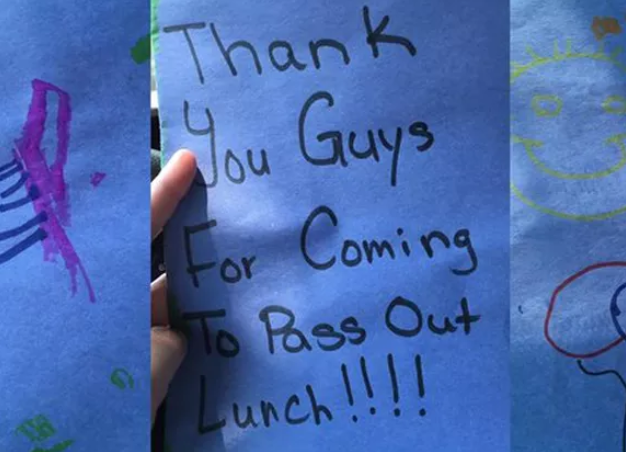 Thank
You Guys
For Coming
To Pass Out
Lunch!!!!